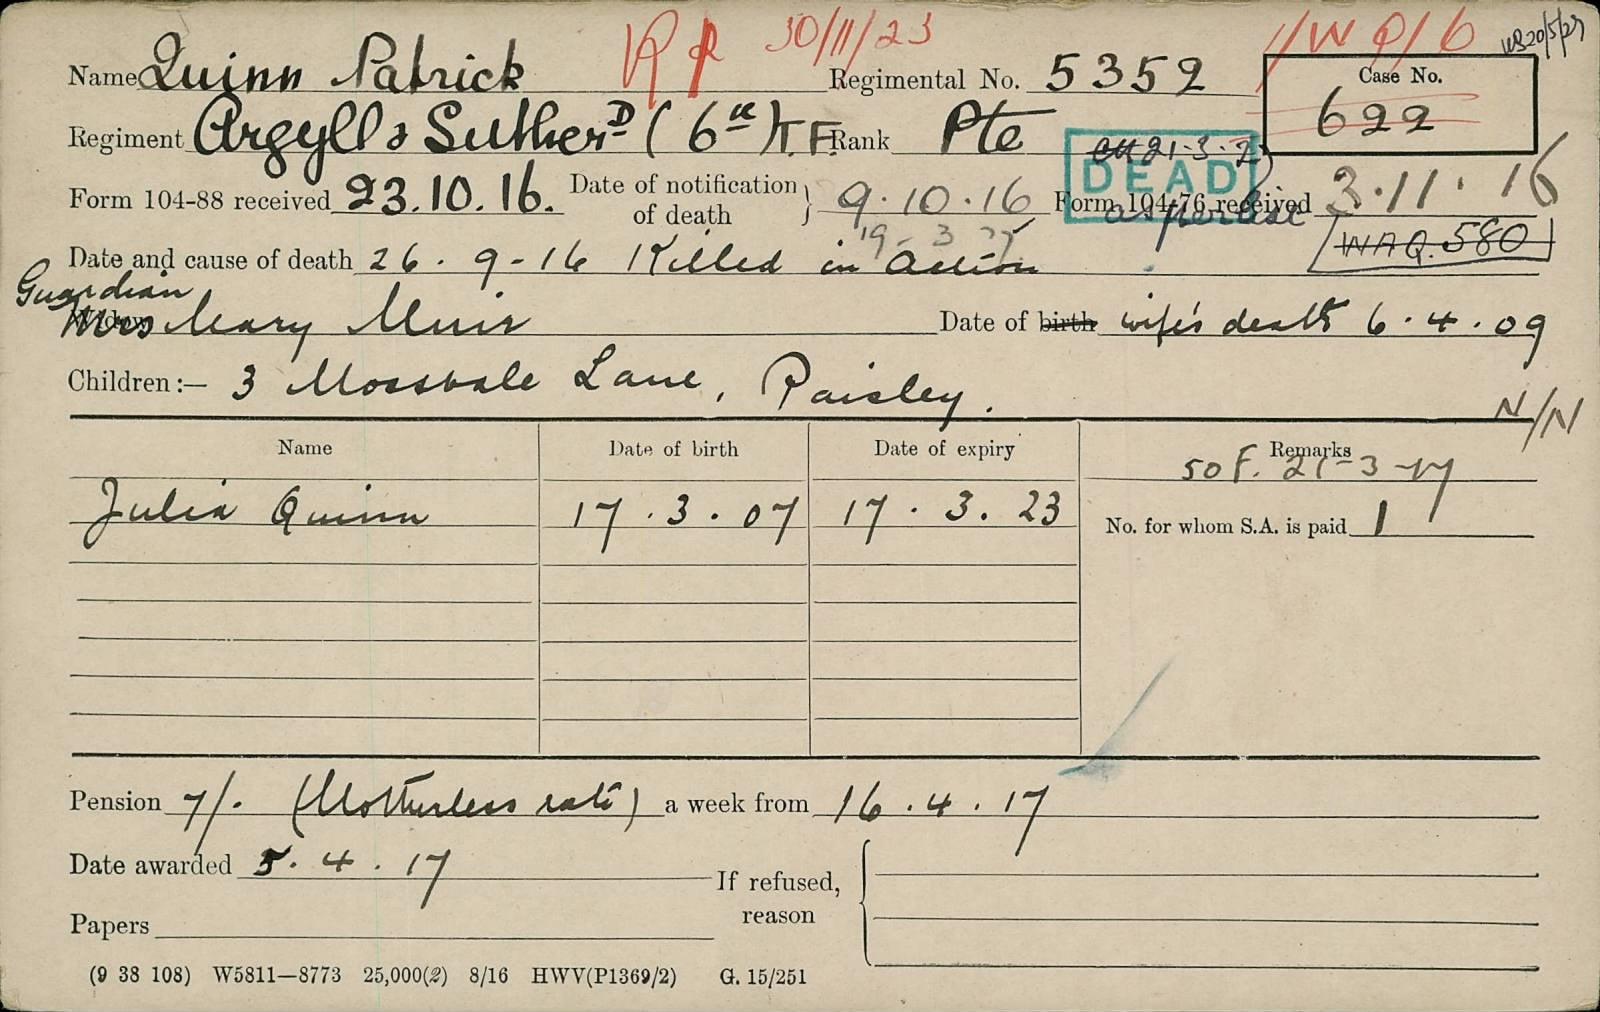 RP 30/11/23 1/WQ/6 WS20/5/27
Name Quinn Patrick Regimental No. 5352 Case No. 622
Regiment Argyll & Sutherd (6th) T.F. Rank Pte
21.3.2
DEAD
Form 104-88 received 23.10.16. Date of notification of death } 9.10.16 Form 104-76 received 3.11.16
19-3-17
WAQ.580
Date and cause of death 26.9-16 Killed in Action
Guardian
Widow Mrs Mary Muir Date of birth wife's death 6.4.09
Children:— 3 Mossvale Lane, Paisley.
N/N
Name Date of birth Date of expiry Remarks
50F. 21-3-17
Julia Quinn 17.3.07 17.3.23 No. for whom S.A. is paid 1
Pension 7/. (Motherless rate) a week from 16.4.17
Date awarded 5.4.17
If refused, reason
Papers
(9 38 108) W5811—8773 25,000(2) 8/16 HWV(P1369/2) G. 15/251